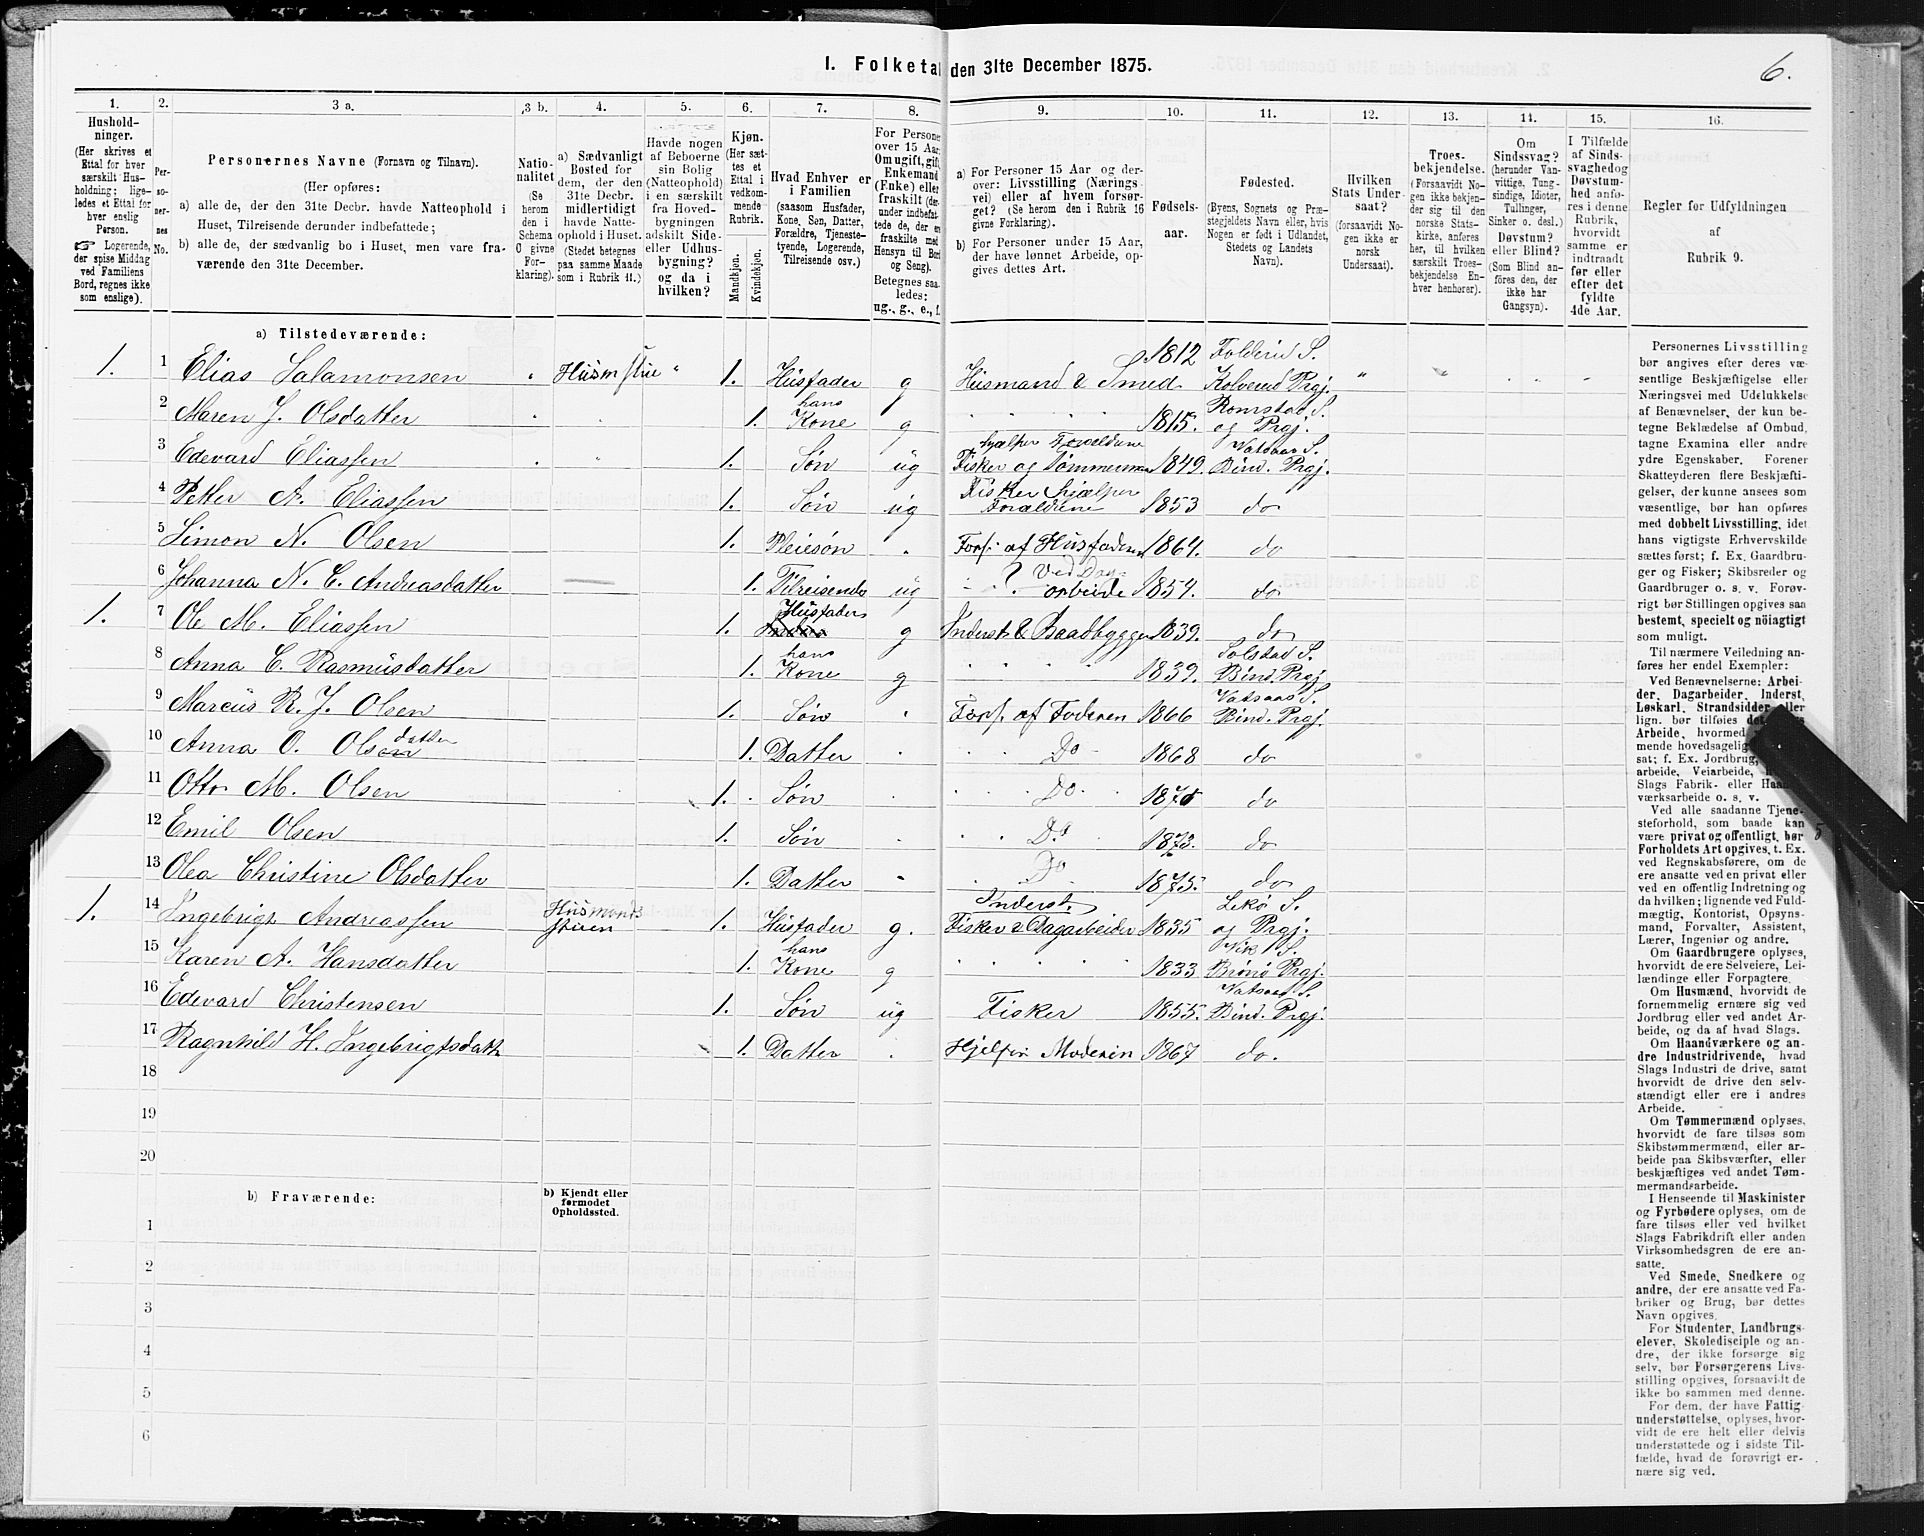 I. Folketal den 31te December 1875.
6.
1.
Hushold-
ninger.
(Her skrives et
Ettal for hver
særskilt Hus-
holdning; lige-
ledes et Ettal for
hver enslig
Person.
☞ Logerende,
der spise Middag
ved Familiens
Bord, regnes ikke
som enslige).
2.
Per-
so-
ner-
nes
No.
3 a.
Personernes Navne (Fornavn og Tilnavn).
(Her opføres:
a) alle de, der den 31te Decbr. havde Natteophold i
Huset, Tilreisende derunder indbefattede;
b) alle de, der sædvanlig bo i Huset, men vare fra-
værende den 31te December.
3 b.
Natio-
nalitet
(Se
herom
den i
Schema
C givne
For-
klaring).
4.
a) Sædvanligt
Bosted for
dem, der den
31te Decbr.
midlertidigt
havde Natte-
ophold i Huset.
(Stedet betegnes
paa samme Maade
som i Rubrik 11.)
5.
Havde nogen
af Beboerne
sin Bolig
(Natteophold)
i en særskilt
fra Hoved-
bygningen
adskilt Side-
eller Udhus-
bygning?
og da i
hvilken?
6.
Kjøn.
(Her sæt-
tes et
Ettal i
vedkom-
mende
Rubrik.
Mandkjøn.
Kvindekjøn.
7.
Hvad Enhver er
i Familien
(saasom Husfader,
Kone, Søn, Datter,
Forældre, Tjeneste-
tyende, Logerende,
Tilreisende osv.)
8.
For Personer
over 15 Aar:
Om ugift, gift,
Enkemand
(Enke) eller
fraskilt (der-
under indbefat-
tede de, der ere
fraskilte med
Hensyn til Bord
og Seng).
Betegnes saa-
ledes:
ug., g., e., f.
9.
a) For Personer 15 Aar og der-
over: Livsstilling (Nærings-
vei) eller af hvem forsør-
get? (Se herom den i Rubrik 16
givne Forklaring).
b) For Personer under 15 Aar,
der have lønnet Arbeide, op-
gives dettes Art.
10.
Fødsels-
aar.
11.
Fødested.
(Byens, Sognets og Præ-
stegjeldets Navn eller, hvis
Nogen er født i Udlandet,
Stedets og Landets
Navn).
12.
Hvilken
Stats Under-
saat?
(forsaavidt No-
gen ikke er
norsk
Undersaat).
13.
Troes-
bekjendelse.
(Forsaavidt No-
gen ikke bekjen-
der sig til den
norske Stats-
kirke, anføres
her, til hvilken
særskilt Troes-
bekjendelse En-
hver henhører).
14.
Om
Sindssvag?
(herunder Van-
vittige, Tung-
sindige, Idioter,
Tullinger,
Sinker o. desl.)
Døvstum?
eller Blind?
(Som Blind an-
føres den, der
ikke har
Gangsyn).
15.
I Tilfælde
af Sinds-
svaghed og
Døvstum-
hed anfø-
res i denne
Rubrik,
hvorvidt
samme er
indtraadt
før eller
efter det
fyldte
4de Aar.
16.
Regler for Udfyldningen
af
Rubrik 9.
a) Tilstedeværende:
1. 1 Elias Salamonsen " Husmstue " 1. Husfader g Husmand & Smed 1812 Folderid S. Kolvereid Prgj. " " " "
2 Maren J. Olsdatter 1. hans Kone g " 1815. Romstad S. og Prgj.
3 Edevard Eliassen 1. Søn ug hjælper Forældrene Fisker og Tømmerman 1849. Vatsaas S. Bind. Prgj.
4 Petter A. Eliassen 1. Søn ug Fisker hjælper Forældrene 1853 do
5 Simon N. Olsen 1. Pleiesøn " Fors. af Husfaderen 1864. do
6 Johanna N. C. Andreasdatter 1. Tilreisende ug ? Ved Dag- arbeide 1854. do
1. 7 Ole M. Eliassen 1. Husfader g Inderst & Baadbygger 1839. do
8 Anna C. Rasmusdatter 1. hans Kone g " 1839. Solstad S. Bind. Prgj
9 Marcus R. J. Olsen 1. Søn " Fors. af Faderen 1866 Vatsaas S. Bind. Prgj.
10 Anna O. Olsdatter 1. Datter " Do 1868 do
11 Otto M. Olsen 1. Søn " Do. 1870 do
12 Emil Olsen 1. Søn " Do 1873. do
13 Olea Christine Olsdatter 1. Datter " Do 1875. do
1. 14 Ingebrigt Andreassen Husmands stuen 1. Husfader g. Inderst. Fisker & Dagarbeider 1835 Lekø S. og Prgj.
15 Karen A. Hansdatter 1. hans Kone g " 1833 Vik S. Brønø Prgj.
16 Edevard Christensen 1. Søn ug Fisker 1855. Vatsaas S. Bind. Prgj.
17 Ragnhild H. Ingebrigtsdatt 1. Datter " Hjelper Moderen 1867 do.
18
19
20
b) Fraværende:
b) Kjendt eller
formodet
Opholdssted.
1
2
3
4
5
6
Personernes Livsstilling
bør angives efter deres væ-
sentlige Beskjæftigelse eller
Næringsvei med Udelukkelse
af Benævnelser, der kun be-
tegne Beklædelse af Ombud,
tagne Examina eller andre
ydre Egenskaber. Forener
Skatteyderen flere Beskjæfti-
gelser, der kunne ansees som
væsentlige, bør han opføres
med dobbelt Livsstilling, idet
hans vigtigste Erhvervskilde
sættes først; f. Ex. Gaardbru-
ger og Fisker; Skibsreder og
Gaardbruger o. s. v. Forøv-
rigt bør Stillingen opgives saa
bestemt, specielt og nøiagtigt
som muligt.
Til nærmere Veiledning an-
føres her endel Exempler:
Ved Benævnelserne: Arbei-
der, Dagarbeider, Inderst,
Løskarl, Strandsidder eller
lign. bør tilføies
Arbeide, hvormed
mende hovedsagelig
sat; f. Ex. Jordbrug,
arbeide, Veiarbeide,
Slags Fabrik- eller Haand-
værksarbeide o. s. v.
Ved alle saadanne Tjene-
steforhold, som baade kan
være privat og offentligt, bør
Forholdets Art opgives, t. Ex.
ved Regnskabsførere, om de
ere ansatte ved en privat eller
ved en offentlig Indretning og
da hvilken; lignende ved Fuld-
mægtig, Kontorist, Opsyns-
mand, Forvalter, Assistent,
Lærer, Ingeniør og andre.
Om Gaardbrugere oplyses,
hvorvidt de ere Selveiere, Lei-
lændinge eller Forpagtere.
Om Husmænd, hvorvidt de
fornemmelig ernære sig ved
Jordbrug eller ved andet Ar-
beide, og da af hvad Slags.
Om Haandværkere og an-
dre Industridrivende, hvad
Slags Industri de drive, samt
hvorvidt de drive den selv-
stændigt eller ere i andres
Arbeide.
Om Tømmermænd oplyses,
hvorvidt de fare tilsøs som
Skibstømmermænd, eller ar-
beide paa Skibsværfter, eller
beskjæftiges ved andet Tøm-
mermandsarbeide.
I Henseende til Maskinister
og Fyrbødere oplyses, om de
fare tilsøs eller ved hvilket
Slags Fabrikdrift eller anden
Virksomhedsgren de ere an-
satte.
Ved Smede, Snedkere og
andre, der ere ansatte ved Fa-
briker og Brug, bør dettes
Navn opgives.
For Studenter, Landbrugs-
elever, Skoledisciple og an-
dre, der ikke forsørge sig
selv, bør Forsørgerens Livs-
stilling opgives, forsaavidt de
ikke bo sammen med denne.
For dem, der have Fattig-
understøttelse, oplyses, hvor-
vidt de ere helt eller delvis
understøttede og i sidste Til-
fælde, hvad de forøvrigt er-
nære sig ved.